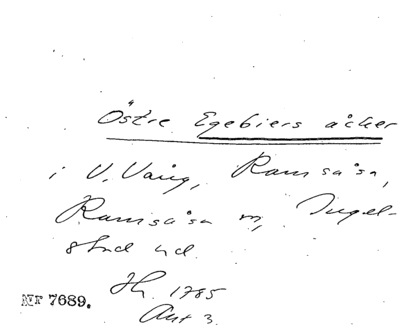 Östre Egebiers åcker
i V. Vång, Ramsåsa,
Ramsåsa sn, Ingel-
stad hd.
Hn. 1785
Akt 3.
NF 7689.